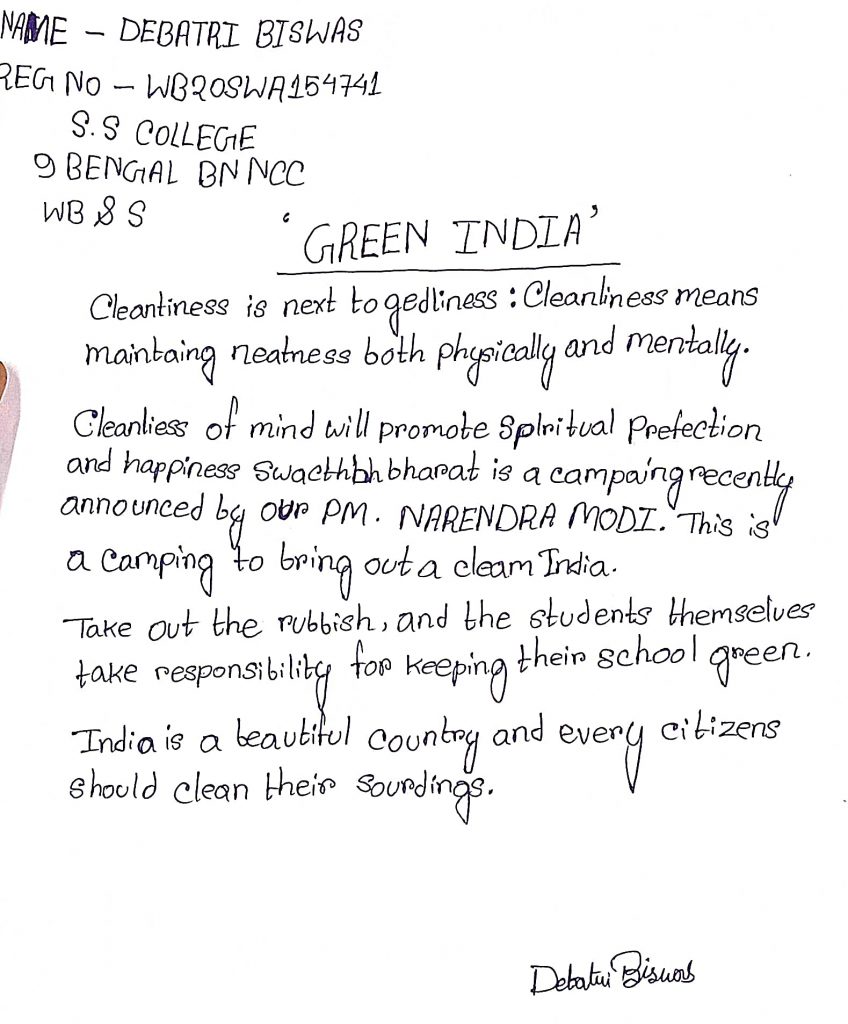 NAME - DEBATRI BISWAS
REG NO - WB20SWA154741
S.S COLLEGE
9 BENGAL BN NCC
WB & S
'GREEN INDIA'
Cleantiness is next to gedliness : Cleanliness means
maintaing neatness both physically and mentally.
Cleanliess of mind will promote Splritual Prefection
and happiness swacthbhbharat is a campaingrecently
announced by our PM. NARENDRA MODI. This is
a camping to bring out a cleam India.
Take out the rubbish, and the students themselves
take responsibility for keeping their school green.
India is a beautiful country and every citizens
should clean their sourdings.
Debatri Biswas